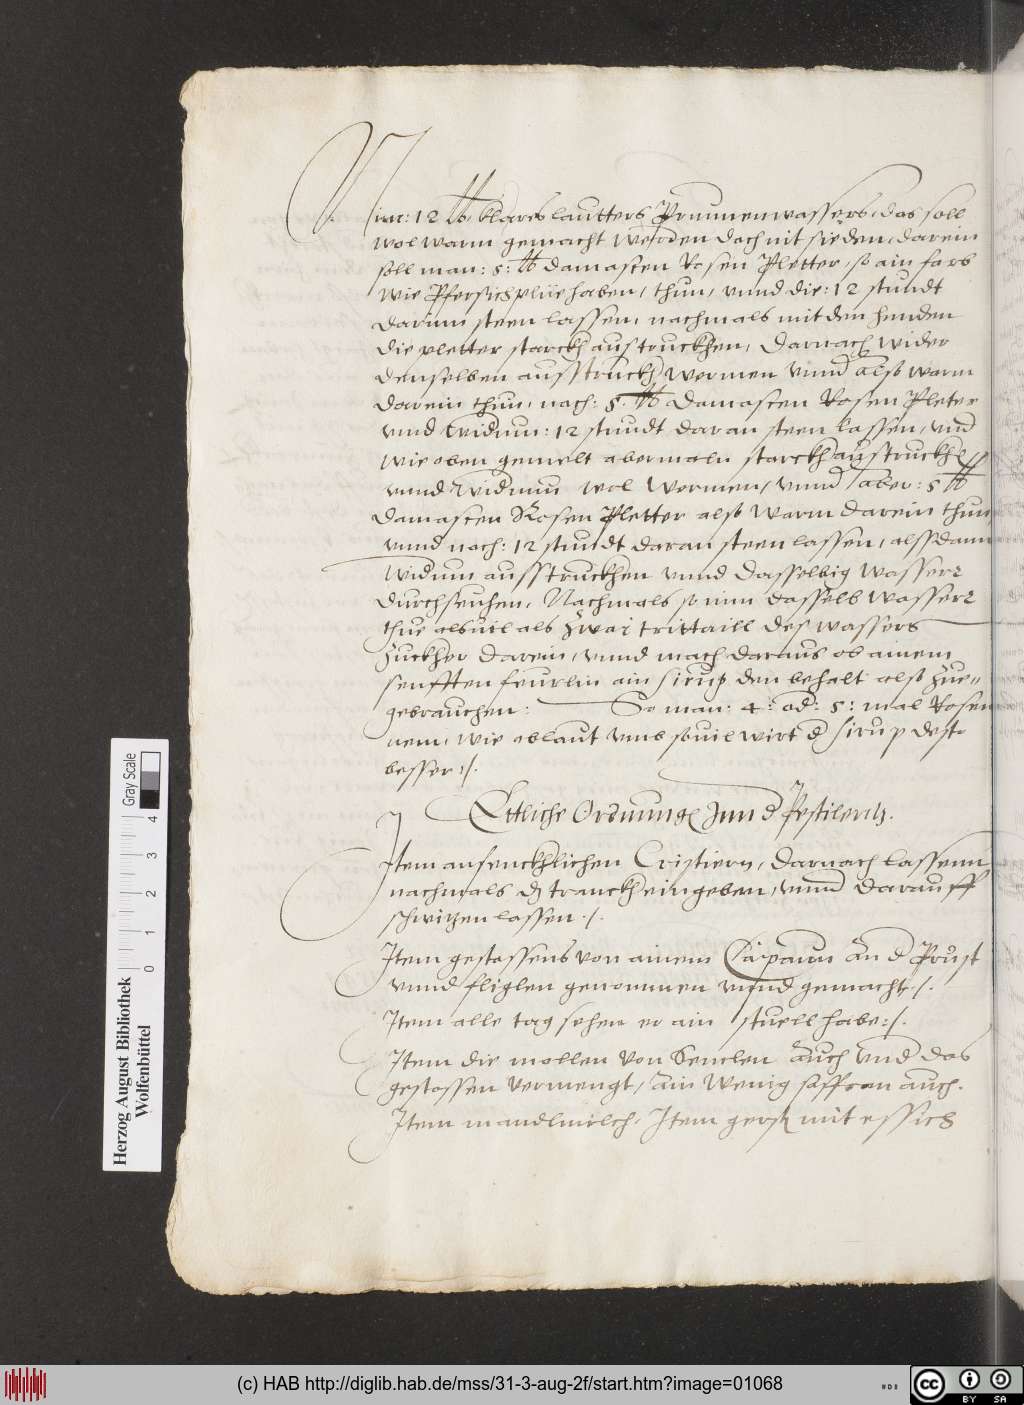 Nim: 12 ℔ klares lautters Prunnenwassers, das soll
wol warm gemacht werden doch nit sieden, darein
soll man: 5: ℔ damascen Rosen Pletter, so ain farb
wie Pfersichplüe haben, thun, unnd die: 12 stundt
darinn steen lassen, nachmals mit den henden
die pletter starckh ausstruckhen, Darnach wider
denselben ausstruckh wermen unnd also warm
darein thun, nach: 5. ℔ Damascen Rosen Pleter
unnd widum: 12 stundt daran steen lassen, und
wie oben gemelt abermaln starckh ausstruckhen
unnd widum wol wermen, unnd aber: 5 ℔
damascen Rosen Pletter also warm darein thun,
unnd nach: 12 stundt daran steen lassen, alssdann
widum ausstruckhen unnd dasselbig wasser
durchseyhen, Nachmals so nim dasselb wasser
thue alsuil als Zwai trittaill des wassers
Zuckher darein, unnd mach daraus ob ainem
senfften feurlin ain sirup den behalt also Zue-
gebrauchen: So man: 4: od: 5: mal Rosen
nem, wie oblaut umb souil wirt d sirup dest
besser ./.
Ettliche Ordnung Inn d Pestilentz.
Item anfenckhlichen Cristiern, darnach lassenn
nachmals dz tranckh eingeben, unnd darauff
schwitzen lassen ./.
Item gestossens von ainem Capaun an d Prust
unnd fliglen genommen unnd gemacht ./.
Item alle tag sehen er ain stuell habe ./.
Item die mollen von Semlen auch und das
gestossen vermengt, Ain wenig saffran auch.
Item mandlmilch, Item gerst mit essich
Gray Scale
0 1 2 3 4
Herzog August Bibliothek
Wolfenbüttel
(c) HAB http://diglib.hab.de/mss/31-3-aug-2f/start.htm?image=01068
cc BY SA